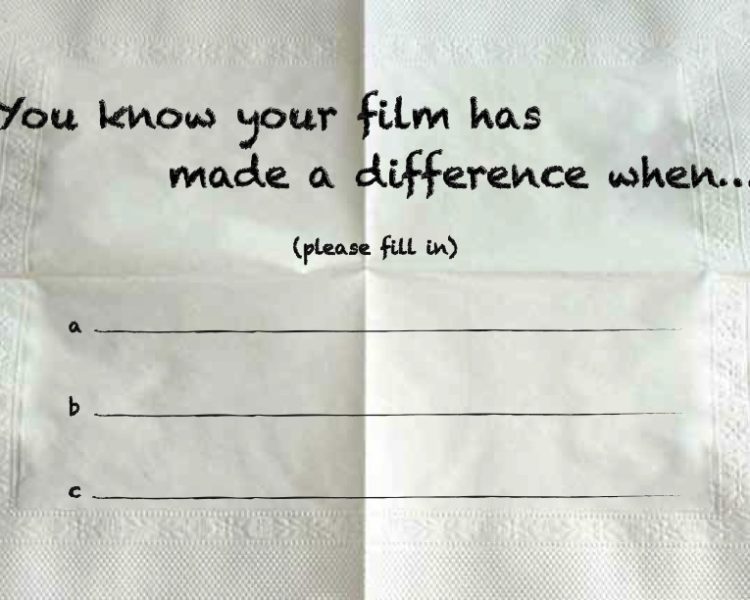 You know your film has
made a difference when...
(please fill in)
a
b
c